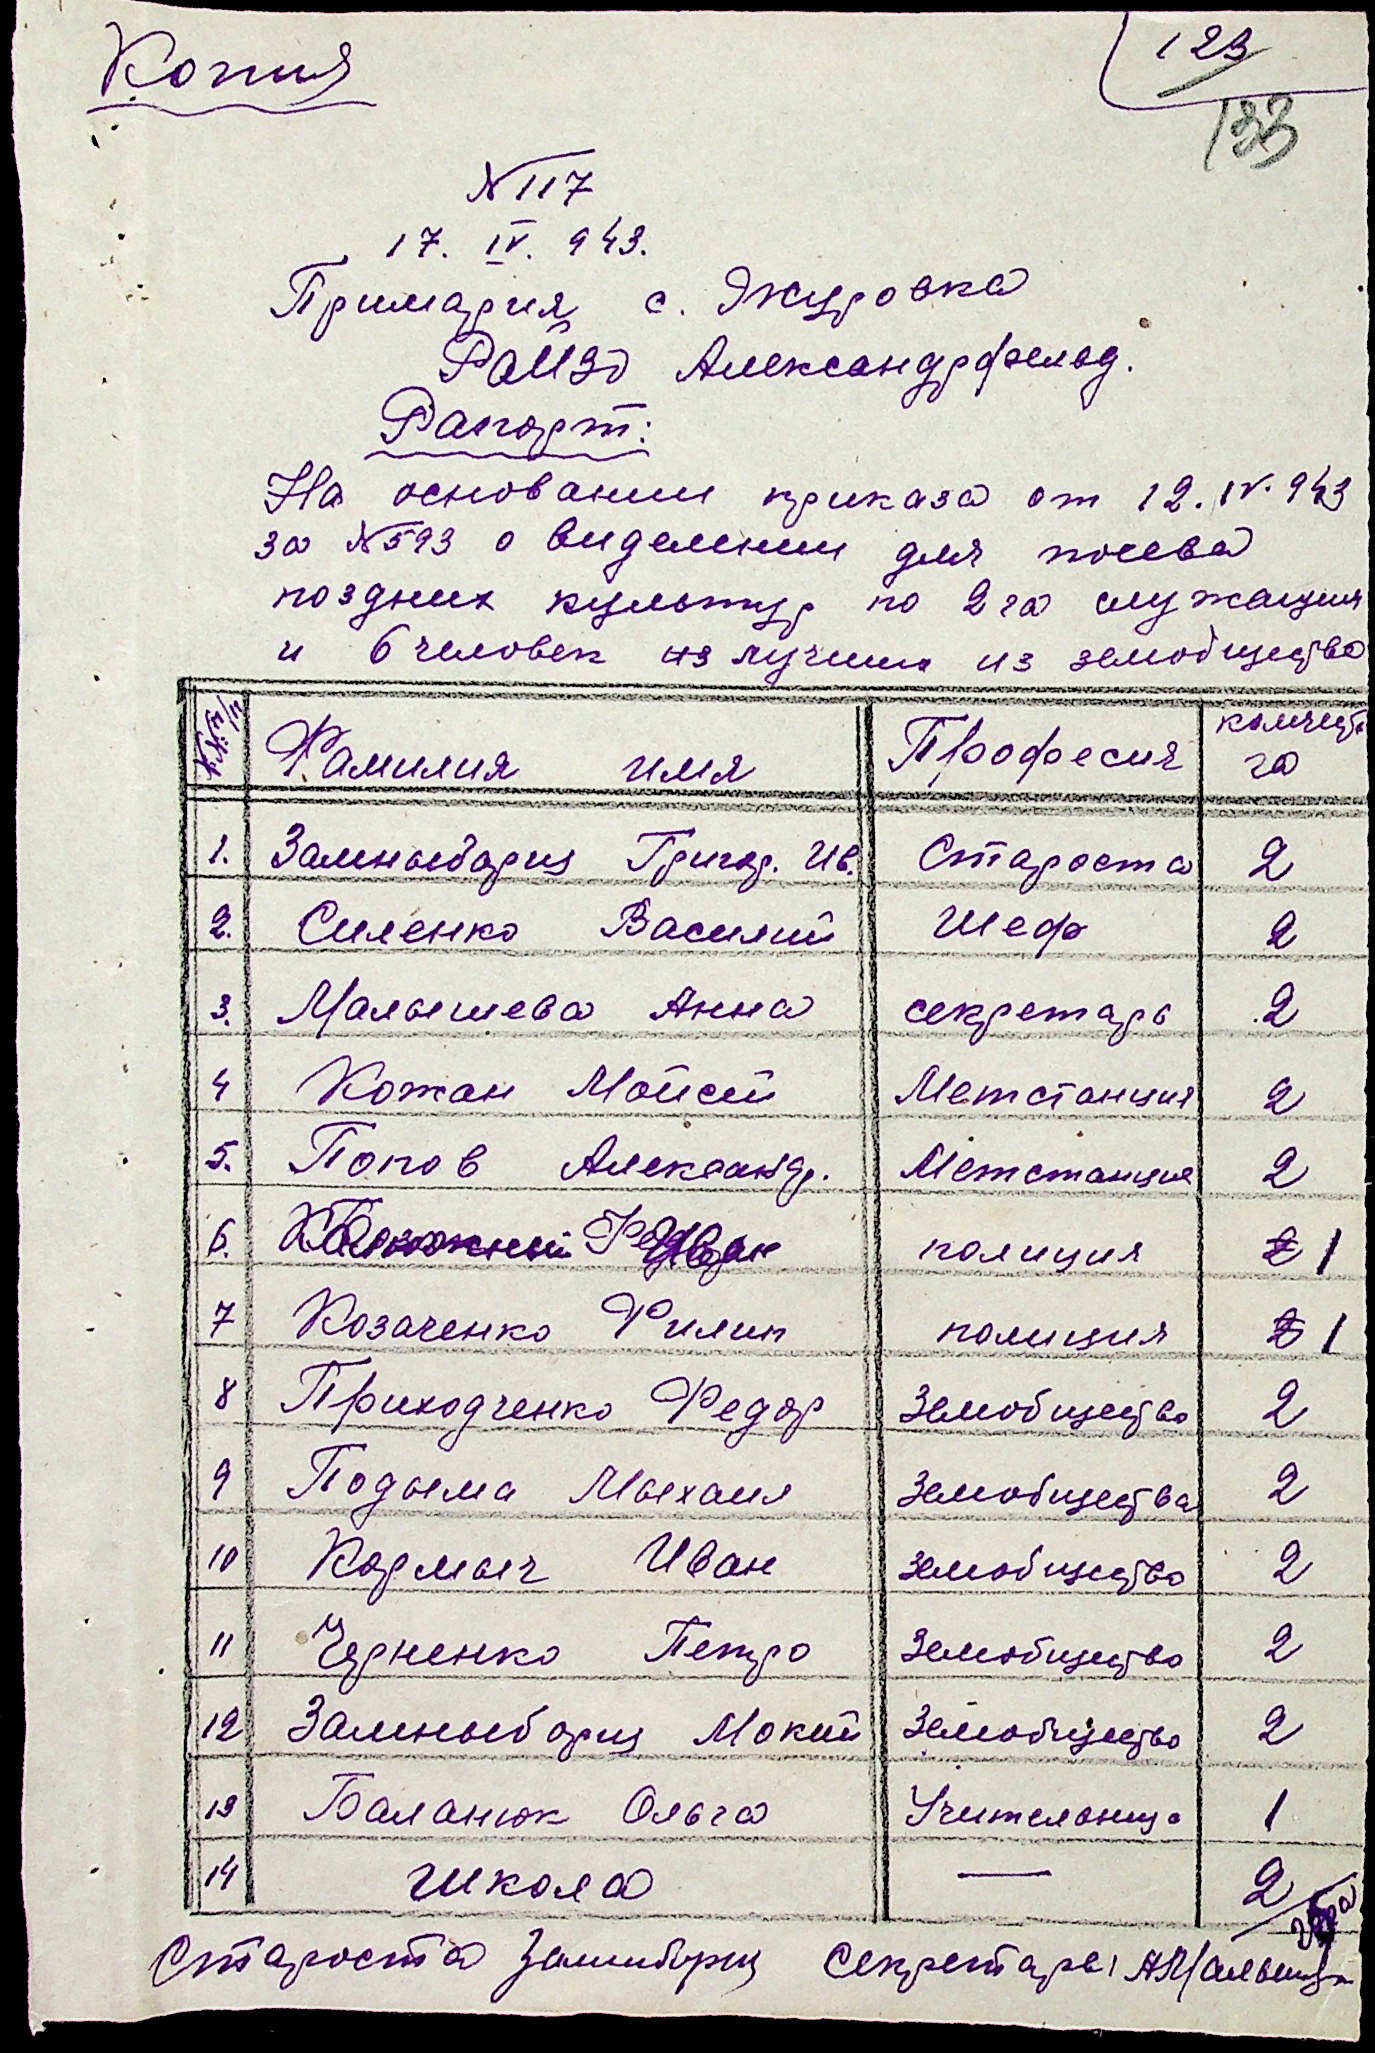 Копия
123
133
№ 117
17. IV. 943.
Примария с. Яжуровка
РайЗО Александрфельд.
Рапорт:
На основании приказа от 12. IV. 943
за №593 о виделении для посева
поздних культур по 2 га служащим
и 6 человек из лучших из земобщества
№№ п/п Фамилия имя Професия количеств га
1. Замныборщ Григор. Ив. Староста 2
2. Силенко Василий Шеф 2
3. Малышева Анна секретарь 2
4 Кожан Мойсей Метстанция 2
5. Попов Александр. Метстанция 2
6. полиция 2 1
7 Козаченко Филип полиция 2 1
8 Приходченко Федор Земобщество 2
9 Подыма Мыхаил Земобщества 2
10 Кармыч Иван Земобщество 2
11 Черненко Петро Земобщество 2
12 Замныборщ Мокий Земобщество 2
13 Баланюк Ольга Учительница 1
14 школа — 2
Староста Замныборщ Секретарь: АМалышева